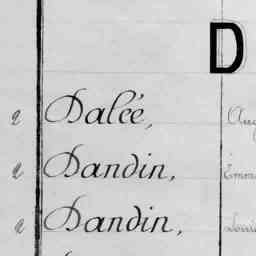 D
2 Dalée,
2 Dandin,
2 Dandin,